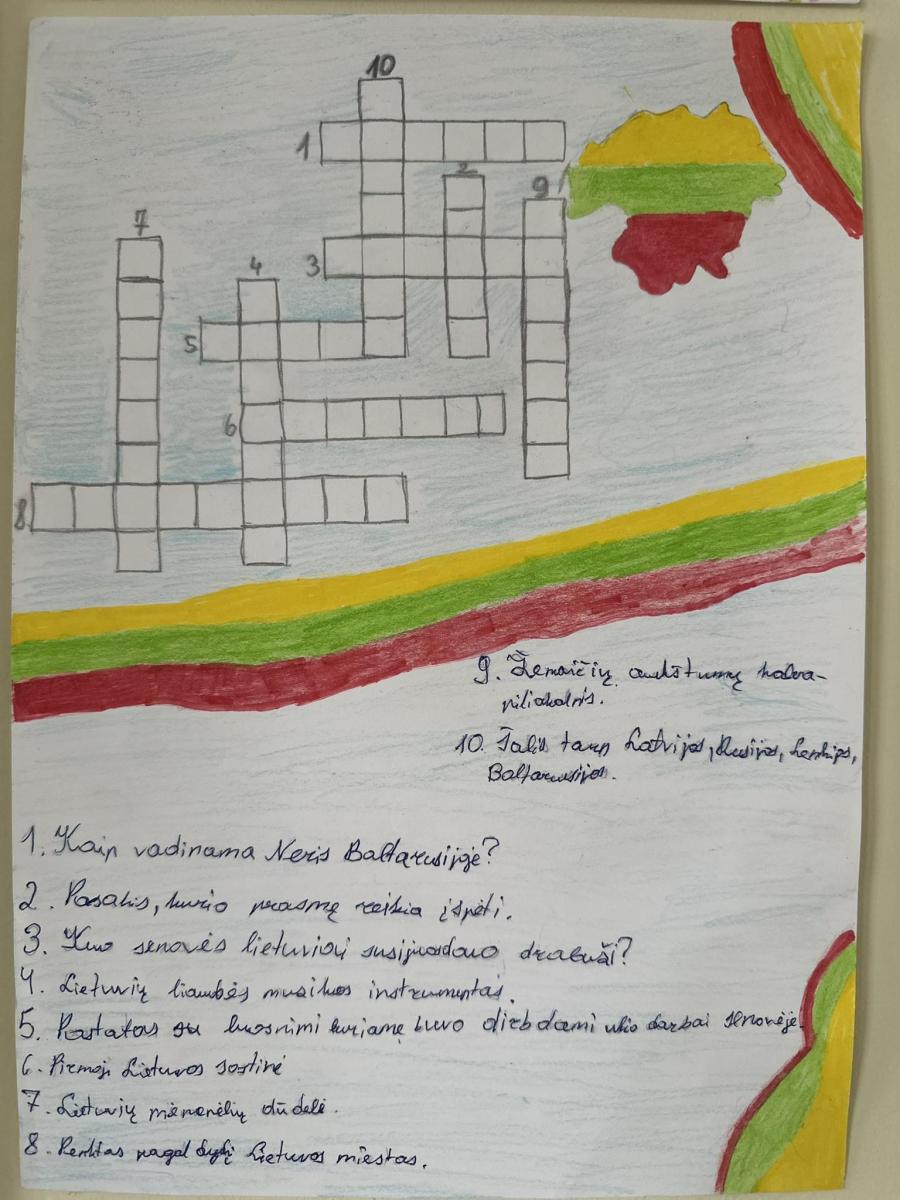 10
1
2
9
7
3
4
5
6
8
9. Žemaičių aukštumų kalva-
piliakalnis.
10. Šalis tarp Latvijos, Rusijos, Lenkijos,
Baltarusijos.
1. Kaip vadinama Neris Baltarusijoje?
2. Pasakis, kurio prasmę reikia įspėti.
3. Kuo senovės lietuviai susijuosdavo drabužį?
4. Lietuvių liaudės muzikos instrumentas.
5. Pastatas su krosnimi kuriame buvo dirbdami ukio darbai senovėje.
6. Pirmoji Lietuvos sostinė
7. Lietuvių piemenėlių dūdelė.
8. Penktas pagal dydį Lietuvos miestas.